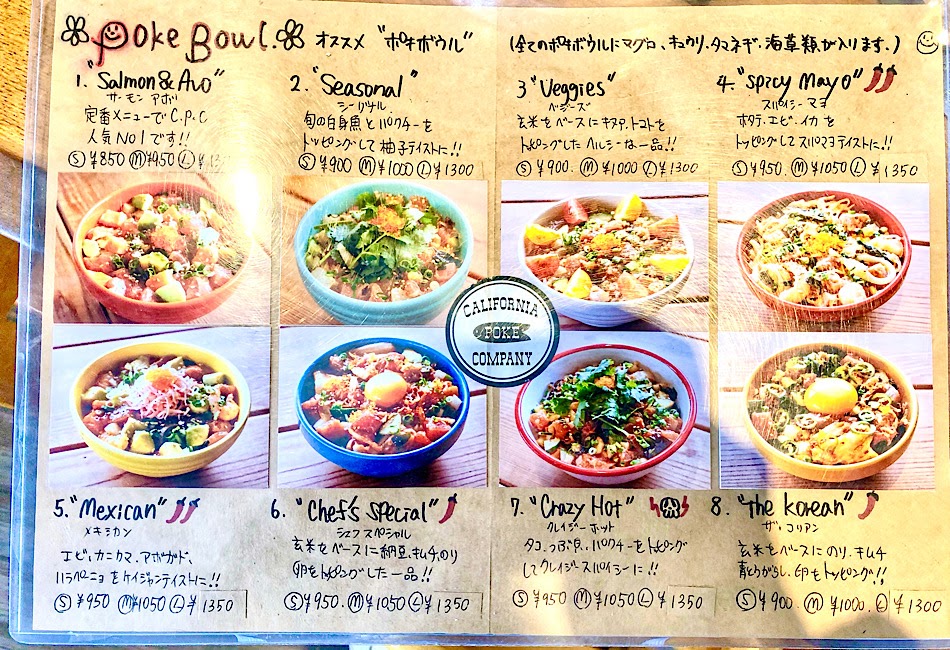 Poke Bowl. オススメ "ポキボウル" (全てのポキボウルにマグロ、キュウリ、タマネギ、海草類が入ります。)
1. "Salmon & Avo"
サーモン アボ
定番メニューでC.P.C
人気No1です!!
Ⓢ¥850 Ⓜ¥950 Ⓛ
2. "Seasonal"
シーズナル
旬の白身魚とパクチーを
トッピングして柚子テイストに!!
Ⓢ¥900 Ⓜ¥1000 Ⓛ¥1300
3 "Veggies"
ベジーズ
玄米をベースにキヌア、トマトを
トッピングしたヘルシーな一品!!
Ⓢ¥900. Ⓜ¥1000 Ⓛ¥1300
4. "Spicy Mayo"
スパイシー マヨ
ホタテ、エビ、イカを
トッピングしてスパマヨテイストに!!
Ⓢ¥950. Ⓜ¥1050 Ⓛ¥1350
CALIFORNIA
POKE
COMPANY
5. "Mexican"
メキシカン
エビ、カニカマ、アボガド、
ハラペーニョをケイジャンテイストに!!
Ⓢ¥950 Ⓜ¥1050 Ⓛ¥1350
6. "Chef's Special"
シェフ スペシャル
玄米をベースに納豆、キムチ、のり
卵をトッピングした一品!!
Ⓢ¥950. Ⓜ¥1050 Ⓛ¥1350
7. "Crazy Hot"
クレイジーホット
タコ、つぶ貝、パクチーをトッピング
してクレイジースパイシーに!!
Ⓢ¥950 Ⓜ¥1050 Ⓛ¥1350
8. "the Korean"
ザ・コリアン
玄米をベースにのり、キムチ
青とうがらし、卵をトッピング!!
Ⓢ¥900. Ⓜ¥1000. Ⓛ¥1300